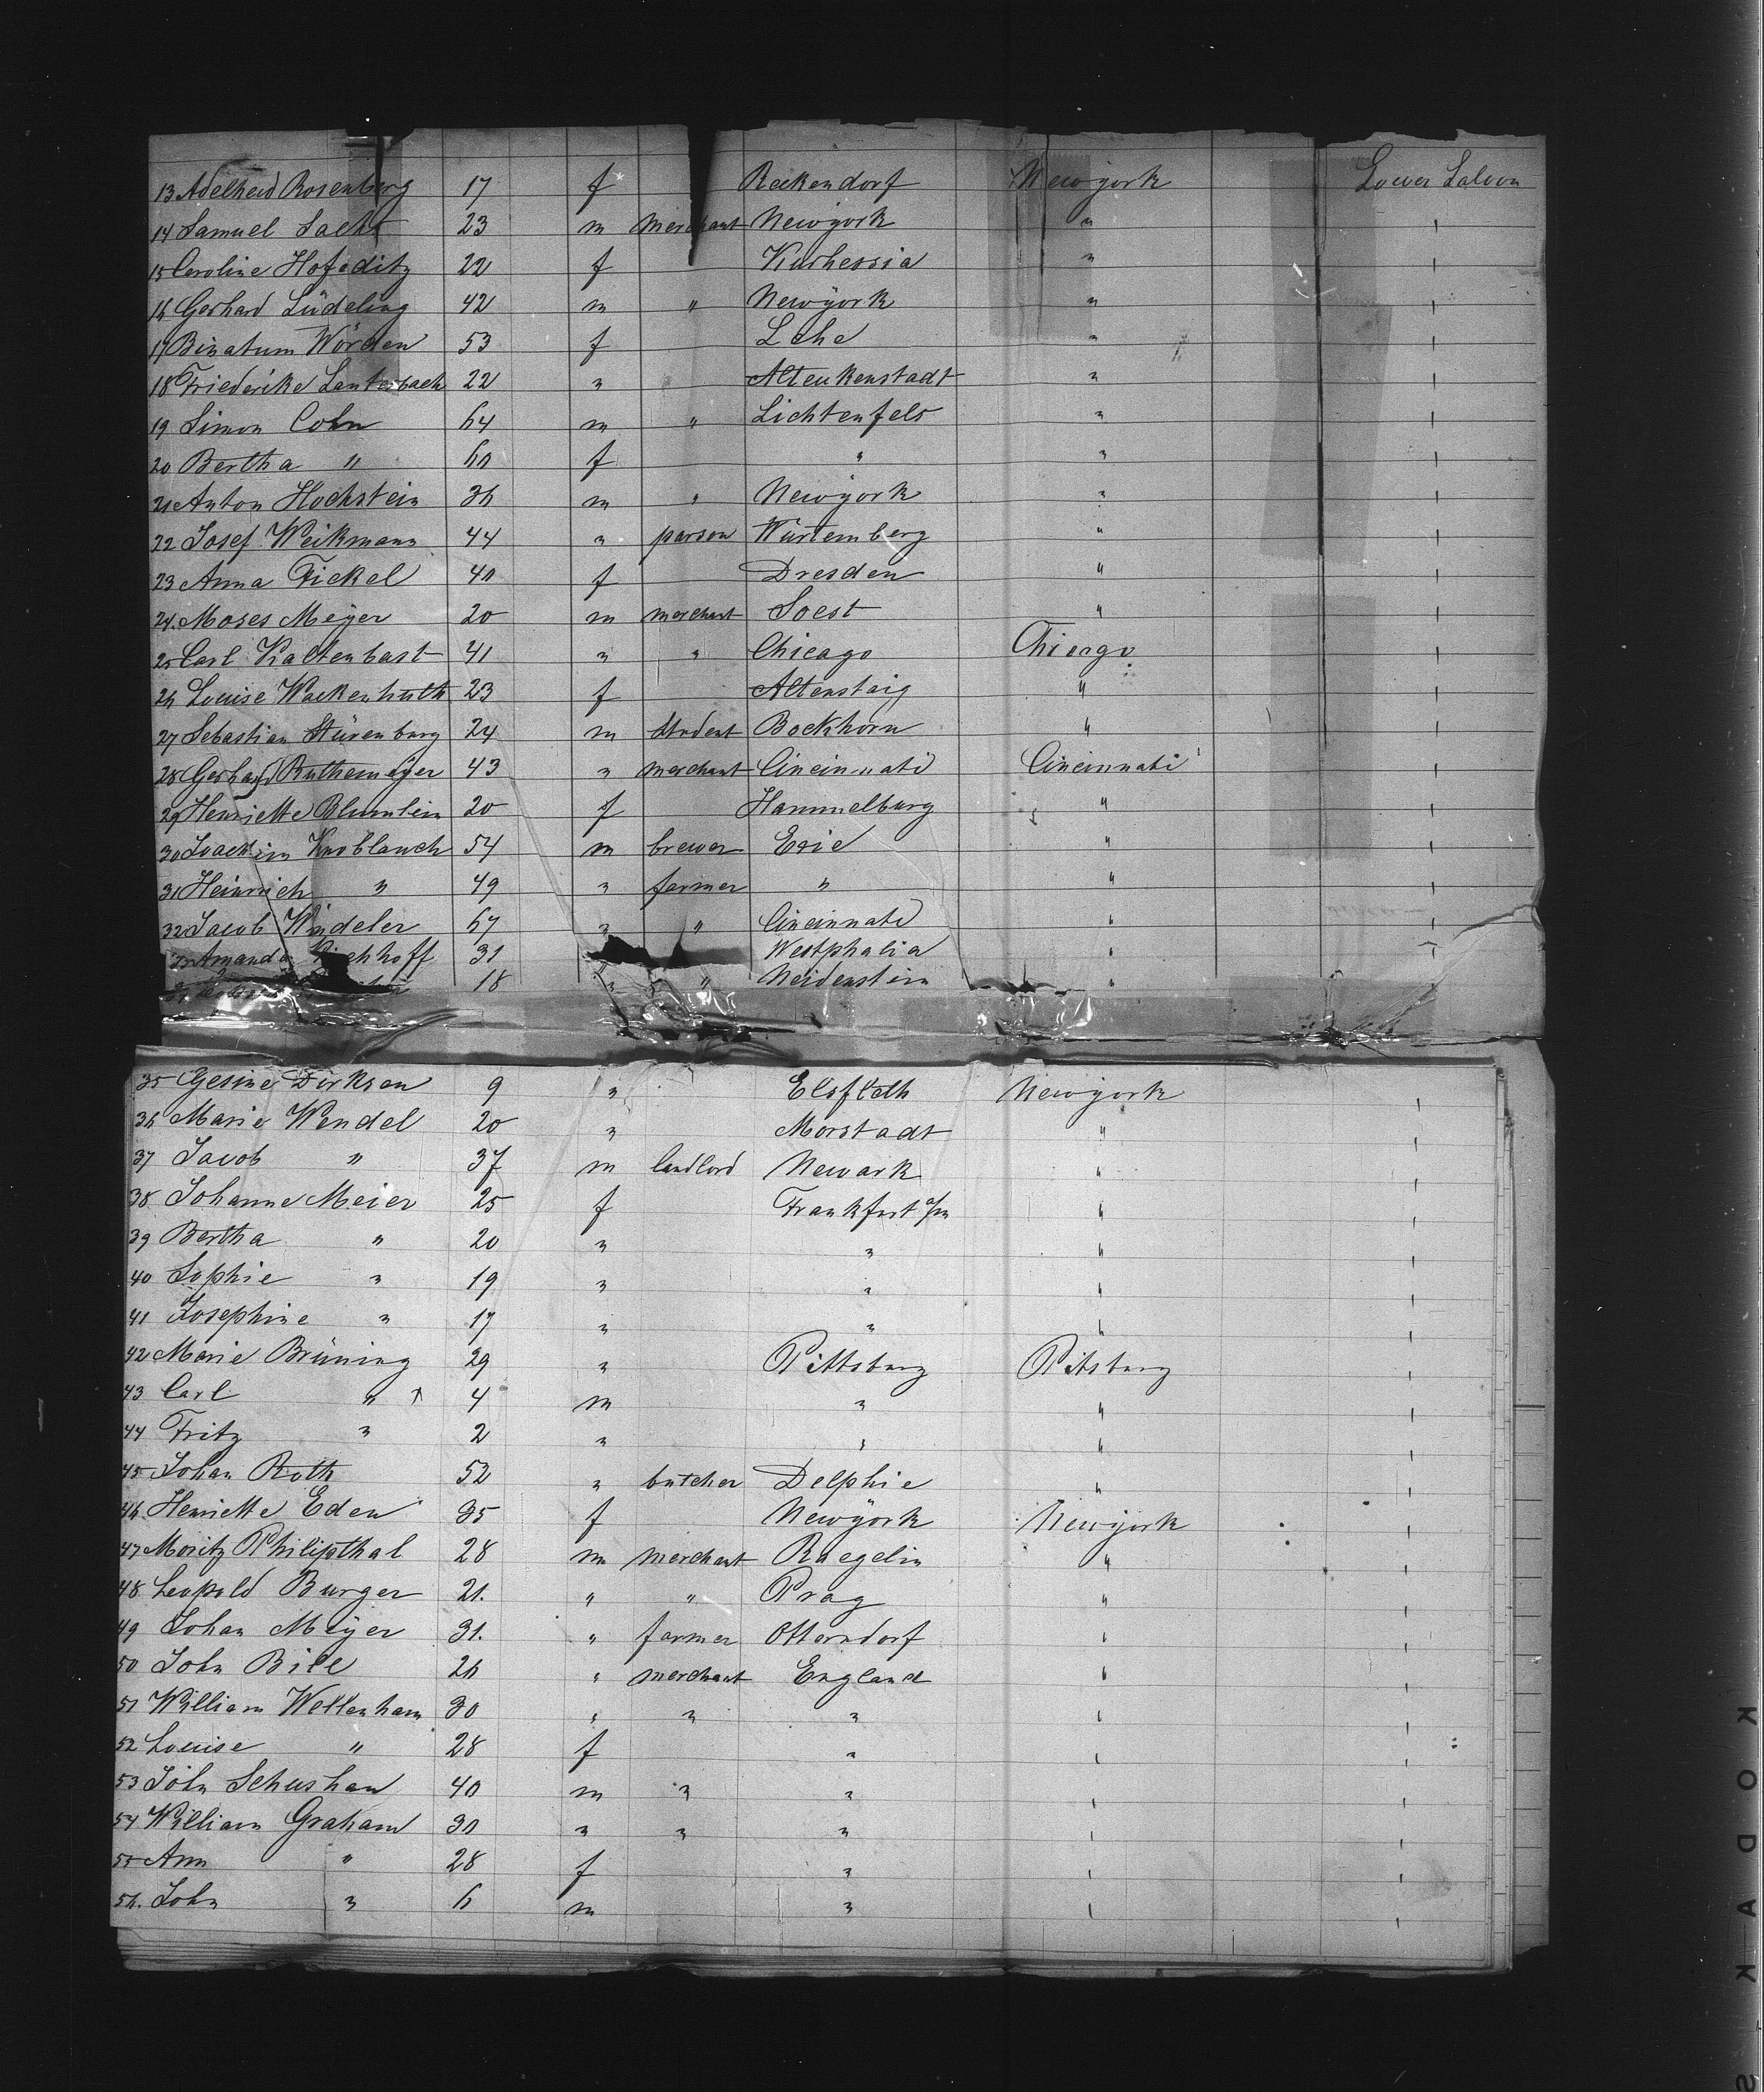 13 Adelheid Rosenberg 17 f Reckendorf Newyork Lower Saloon
14 Samuel Sachs 23 m merchant Newyork "
15 Caroline Hofeditz 22 f Kurhessia "
16 Gerhard Lüdeling 42 m " Newyork "
17 Binatum Wörden 53 f Lehe "
18 Friederike Lauterbach 22 " Altenkenstadt "
19 Simon Cohn 64 m " Lichtenfels "
20 Bertha " 60 f " "
21 Anton Hochstein 36 m " Newyork "
22 Josef Weikmann 44 " parson Würtemberg "
23 Anna Fickel 40 f Dresden "
24. Moses Meyer 20 m merchant Soest "
25 Carl Kaltenbast 41 " " Chicago Chicago
26 Louise Wackenhuth 23 f Altenstaig "
27 Sebastian Stürenburg 24 m student Bockhorn "
28 Gerhard Ruthemeyer 43 " merchant Cincinnati Cincinnati
29 Henriette Blumlein 20 f Hammelburg "
30 Joachim Knoblauch 54 m brewer Erie "
31 Heinrich " 49 " farmer " "
32 Jacob Windeler 67 " " Cincinnati "
33 Amanda hhoff 31 Westphalia "
18 " " Neidenstein "
35 Gesine Dirksen 9 " Elsfleth Newyork
36 Marie Wendel 20 " Morstadt "
37 Jacob " 37 m landlord Newark "
38 Johanne Meier 25 f Frankfurt a/m "
39 Bertha " 20 " " "
40 Sophie " 19 " " "
41 Josephine " 17 " " "
42 Marie Brüning 29 " Pittsburg Pitsburg
43 Carl " 4 m " "
44 Fritz " 2 " " "
45 Johan Roth 52 " butcher Delphie "
46 Henriette Eden 35 f Newyork Newyork
47 Moritz Philipthal 28 m merchant Roegelin "
48 Leopold Burger 21. " " Prag "
49 Johan Meyer 31. " farmer Otterndorf "
50 John Bill 26 " merchant England "
51 William Wellenham 30 " " " "
52 Louise " 28 f " "
53 John Schushan 40 m " " "
54 William Graham 30 " " " "
55 Ann " 28 f " "
56. John " 6 m " "
KODAK S